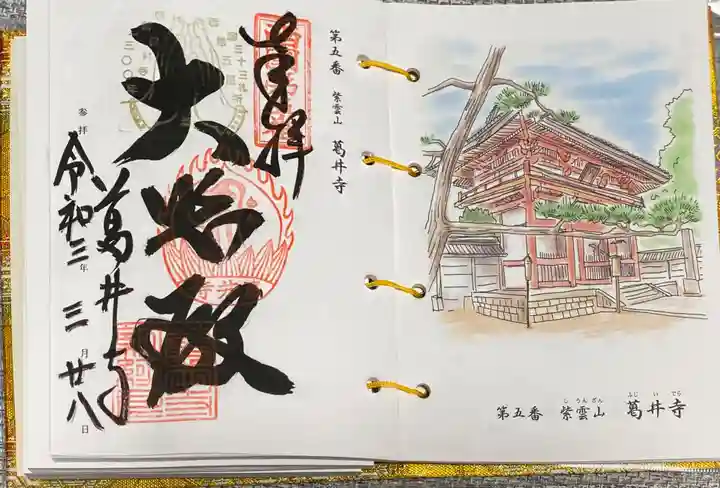 第五番 紫雲山 葛井寺
奉拝
大悲殿
葛井寺
参拝
令和三年 三月廿八日
しうんざん ふじいでら
第五番 紫雲山 葛井寺